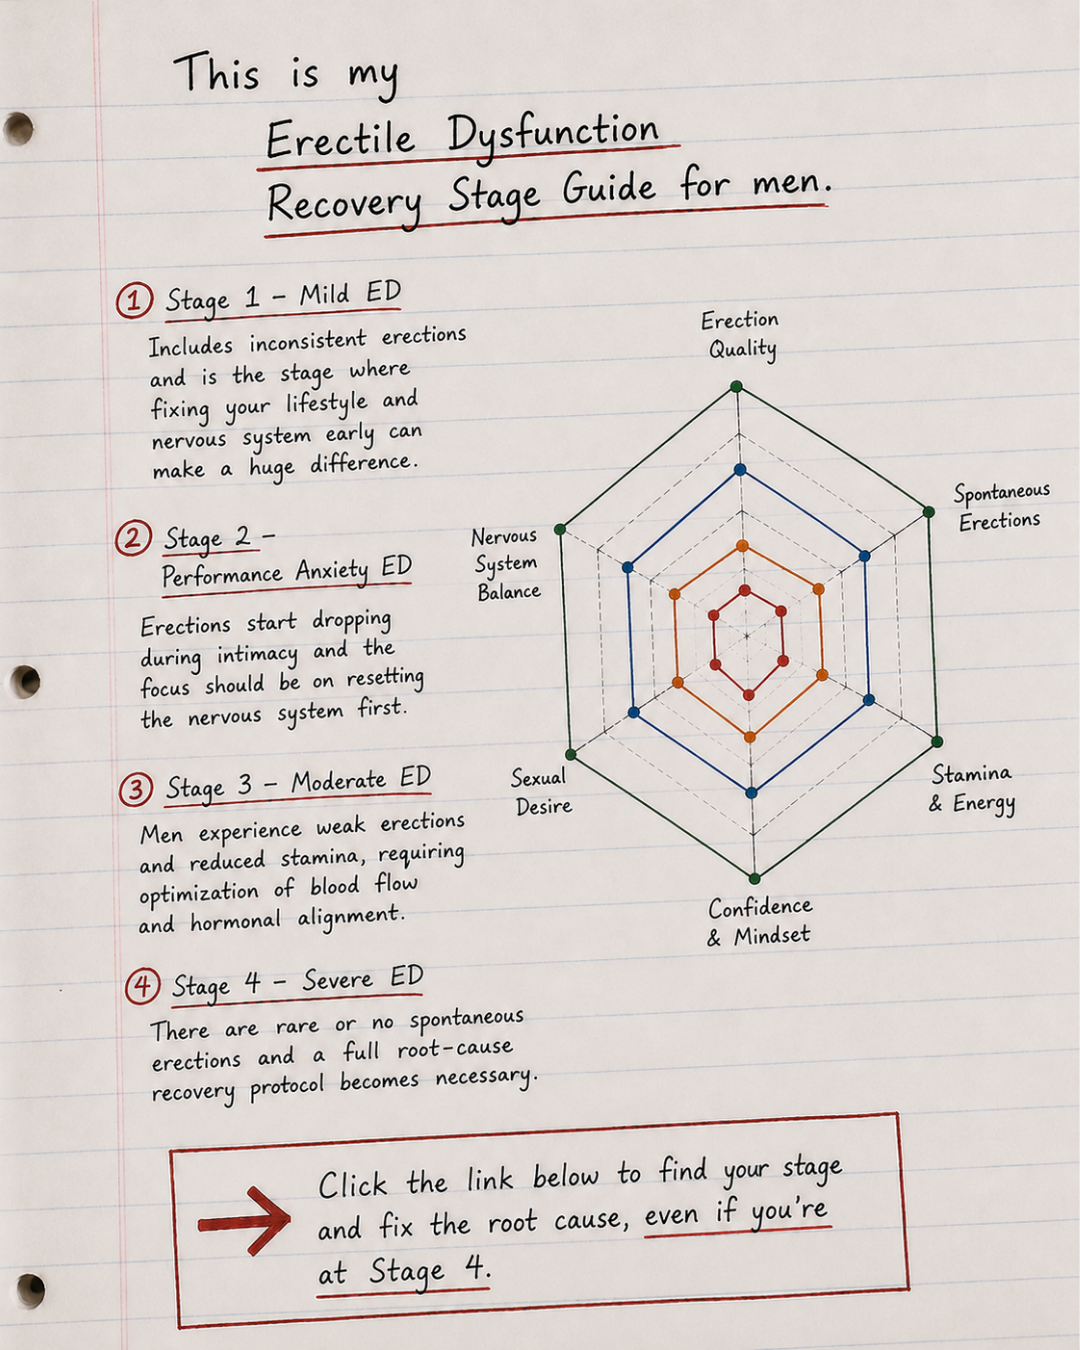 This is my
Erectile Dysfunction
Recovery Stage Guide for men.
1 Stage 1 - Mild ED
Includes inconsistent erections
and is the stage where
fixing your lifestyle and
nervous system early can
make a huge difference.
2 Stage 2 -
Performance Anxiety ED
Erections start dropping
during intimacy and the
focus should be on resetting
the nervous system first.
3 Stage 3 - Moderate ED
Men experience weak erections
and reduced stamina, requiring
optimization of blood flow
and hormonal alignment.
4 Stage 4 - Severe ED
There are rare or no spontaneous
erections and a full root-cause
recovery protocol becomes necessary.
Erection
Quality
Spontaneous
Erections
Stamina
& Energy
Confidence
& Mindset
Sexual
Desire
Nervous
System
Balance
Click the link below to find your stage
and fix the root cause, even if you're
at Stage 4.